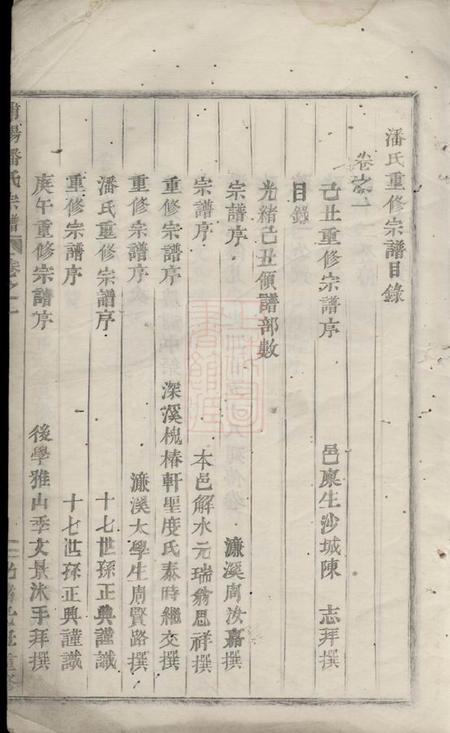 潘氏重修宗譜目錄
卷之一
己丑重修宗譜序 邑廩生沙城陳 志拜撰
目錄
光緒己丑領譜部數
宗譜序 濂溪周汝嘉撰
宗譜序 本邑解水元瑞翁恩祥撰
重修宗譜序 深溪槐椿軒聖度氏泰時繼交撰
重修宗譜序 濂溪太學生周賢路撰
潘氏重修宗譜序 十七世孫正典謹識
重修宗譜序 十七世孫正典謹識
庚午重修宗譜序 後學雅山季文景沐手拜撰
陽潘氏宗譜 卷之一